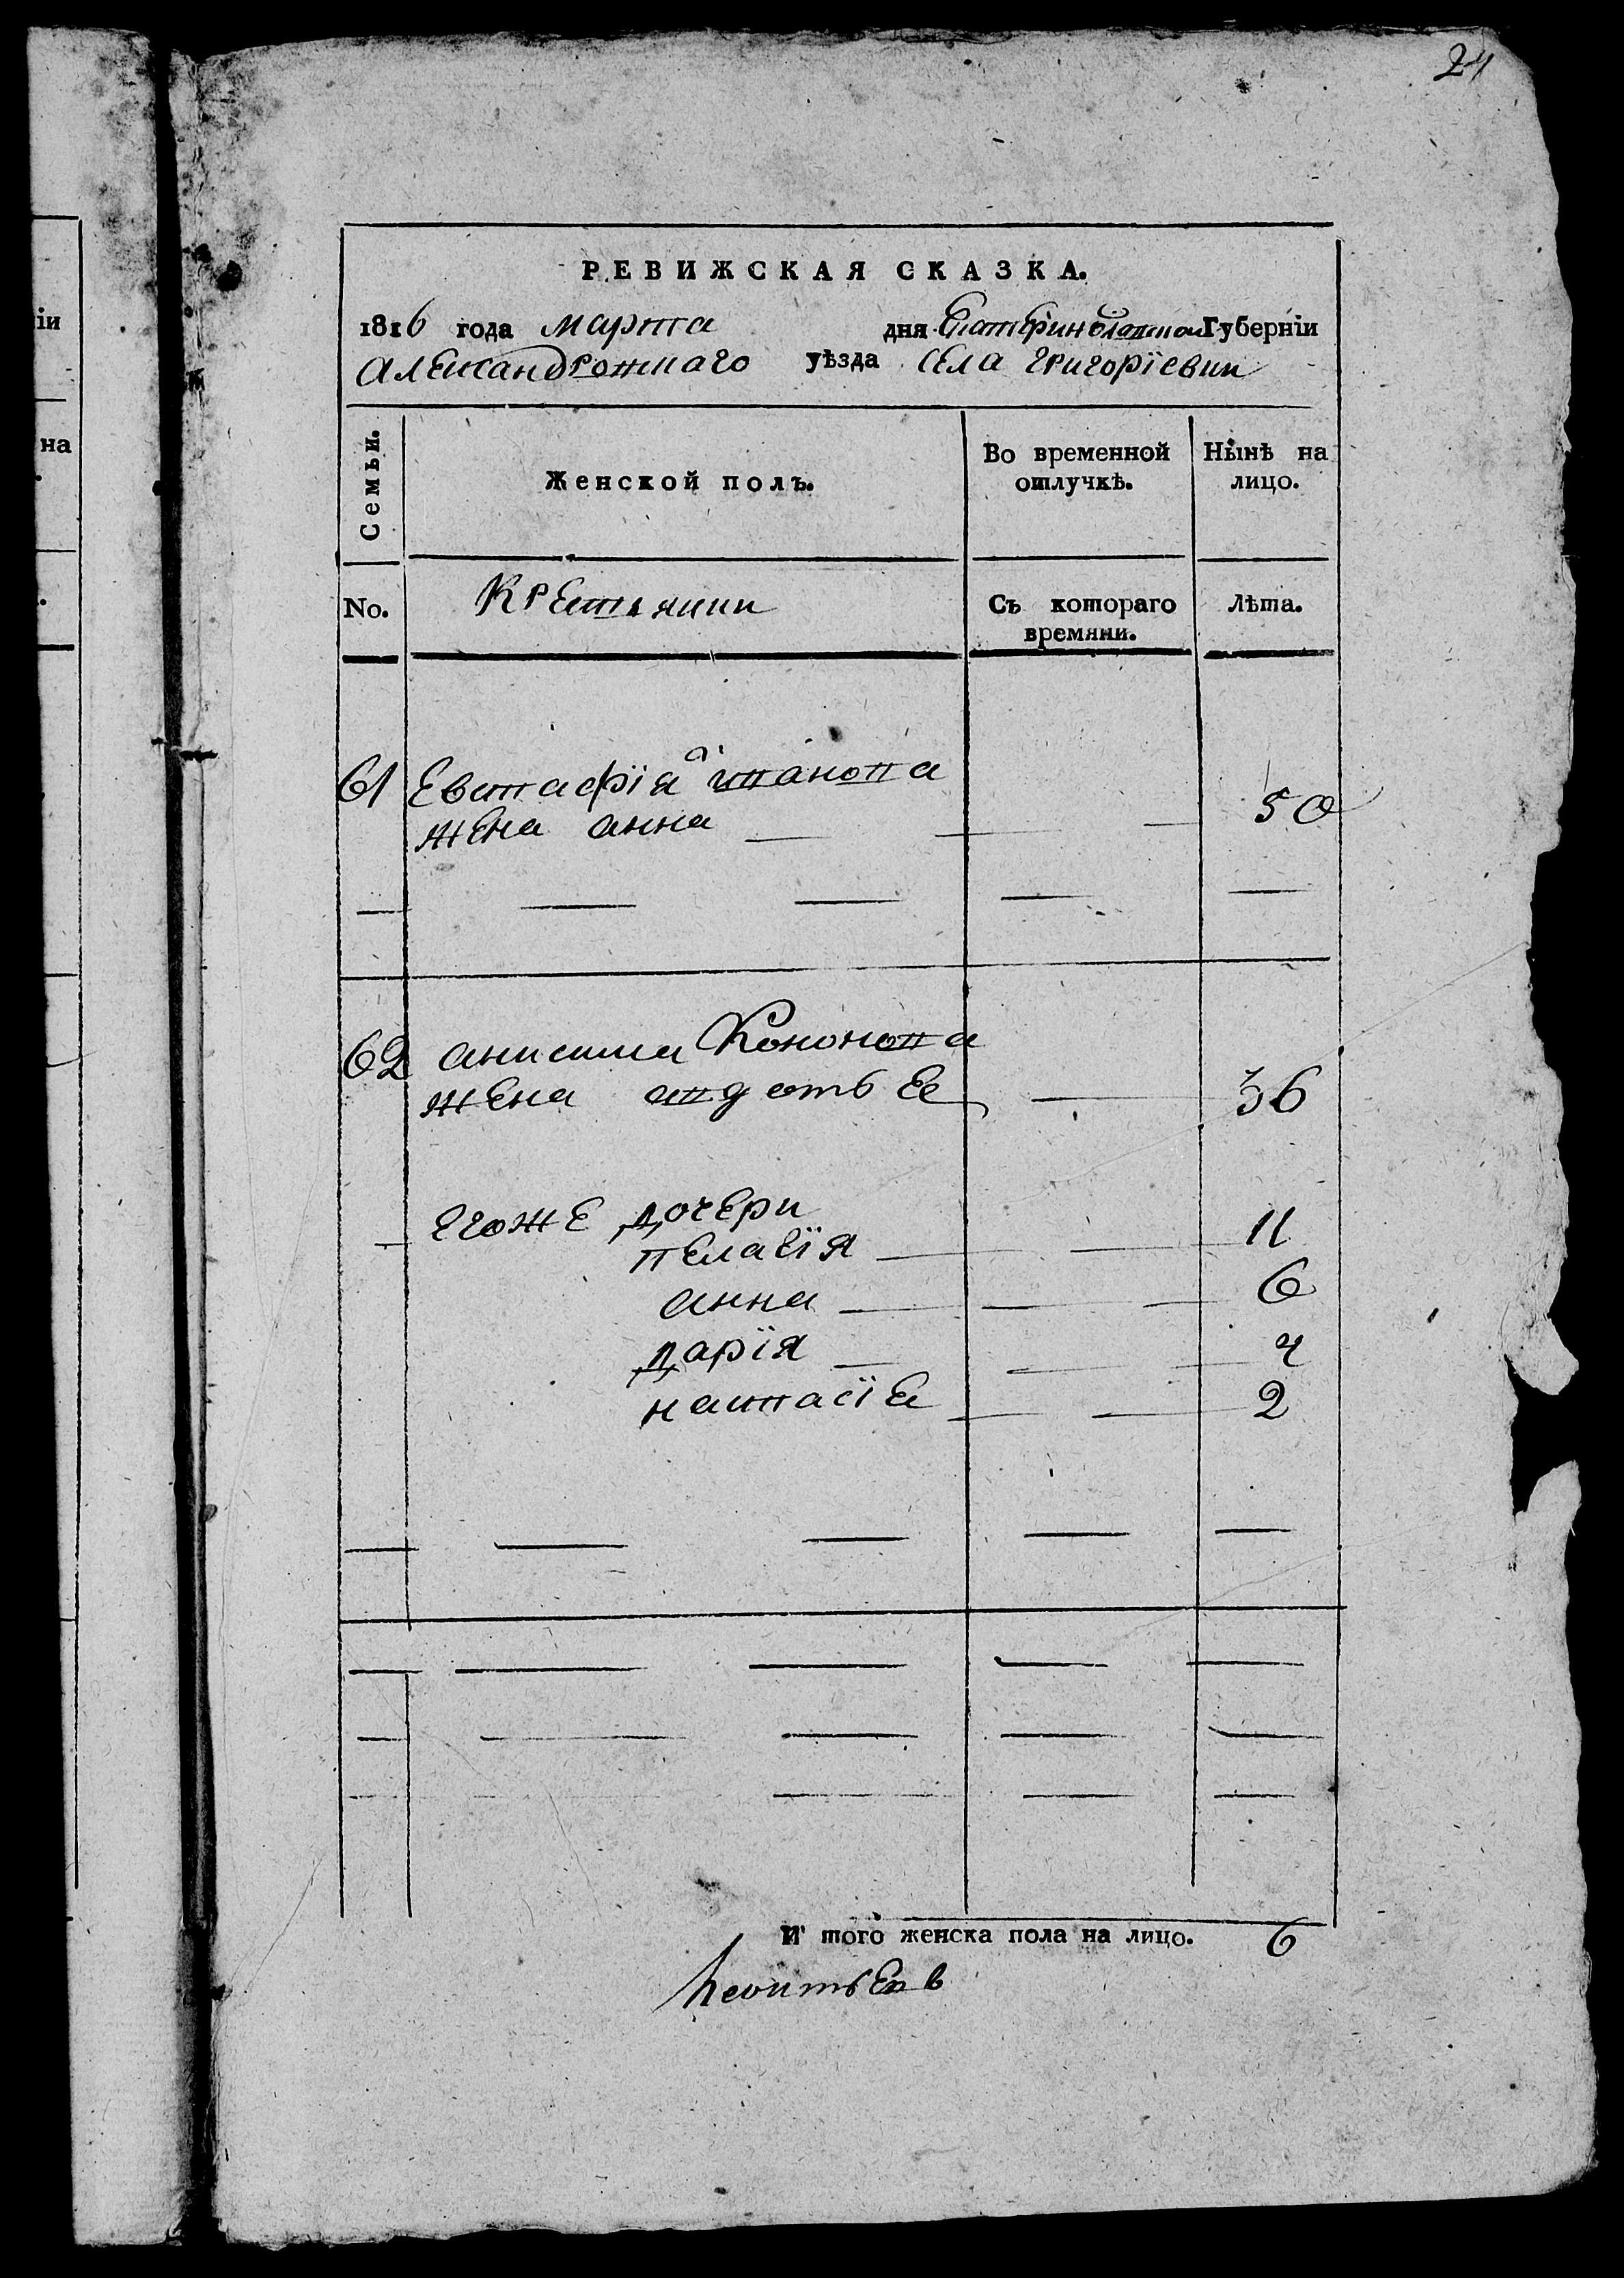 24
іи
на
РЕВИЖСКАЯ СКАЗКА.
1816 года марта дня Екатеринославской Губерніи
Александровскаго уѣзда села григорїевки
Семьи.
Женской полъ.
Во временной отлучкѣ.
Нынѣ на лицо.
No.
Крестьянки
Съ котораго времяни.
Лѣта.
61 Евстафїя иванова
жена анна 50
62 анисима Кононова
жена авдотья 36
егоже дочери
пелагїя 11
анна 6
дарїя 4
настасїя 2
И того женска пола на лицо. 6